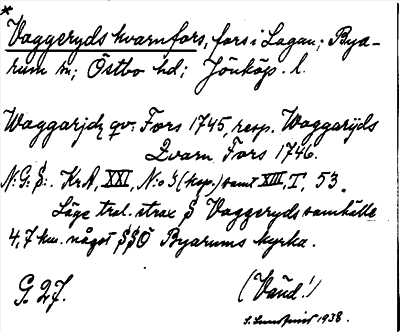 *
Vaggeryds kvarnfors, fors i Lagan; Bya-
rum sn; Östbo hd; Jönköp. l.
Waggarjdz qv: Fors 1745, resp. Waggarijds
Qvarn Fors 1746.
N:G:S:. KrA, XXI, N:o 3 (kop.) samt XIII, I, 53.
Läge tral. strax S Vaggeryds samhälle
4,7 km. något SSÖ Byarums kyrka.
G. 27.
(Vaud!)
S. 1938.